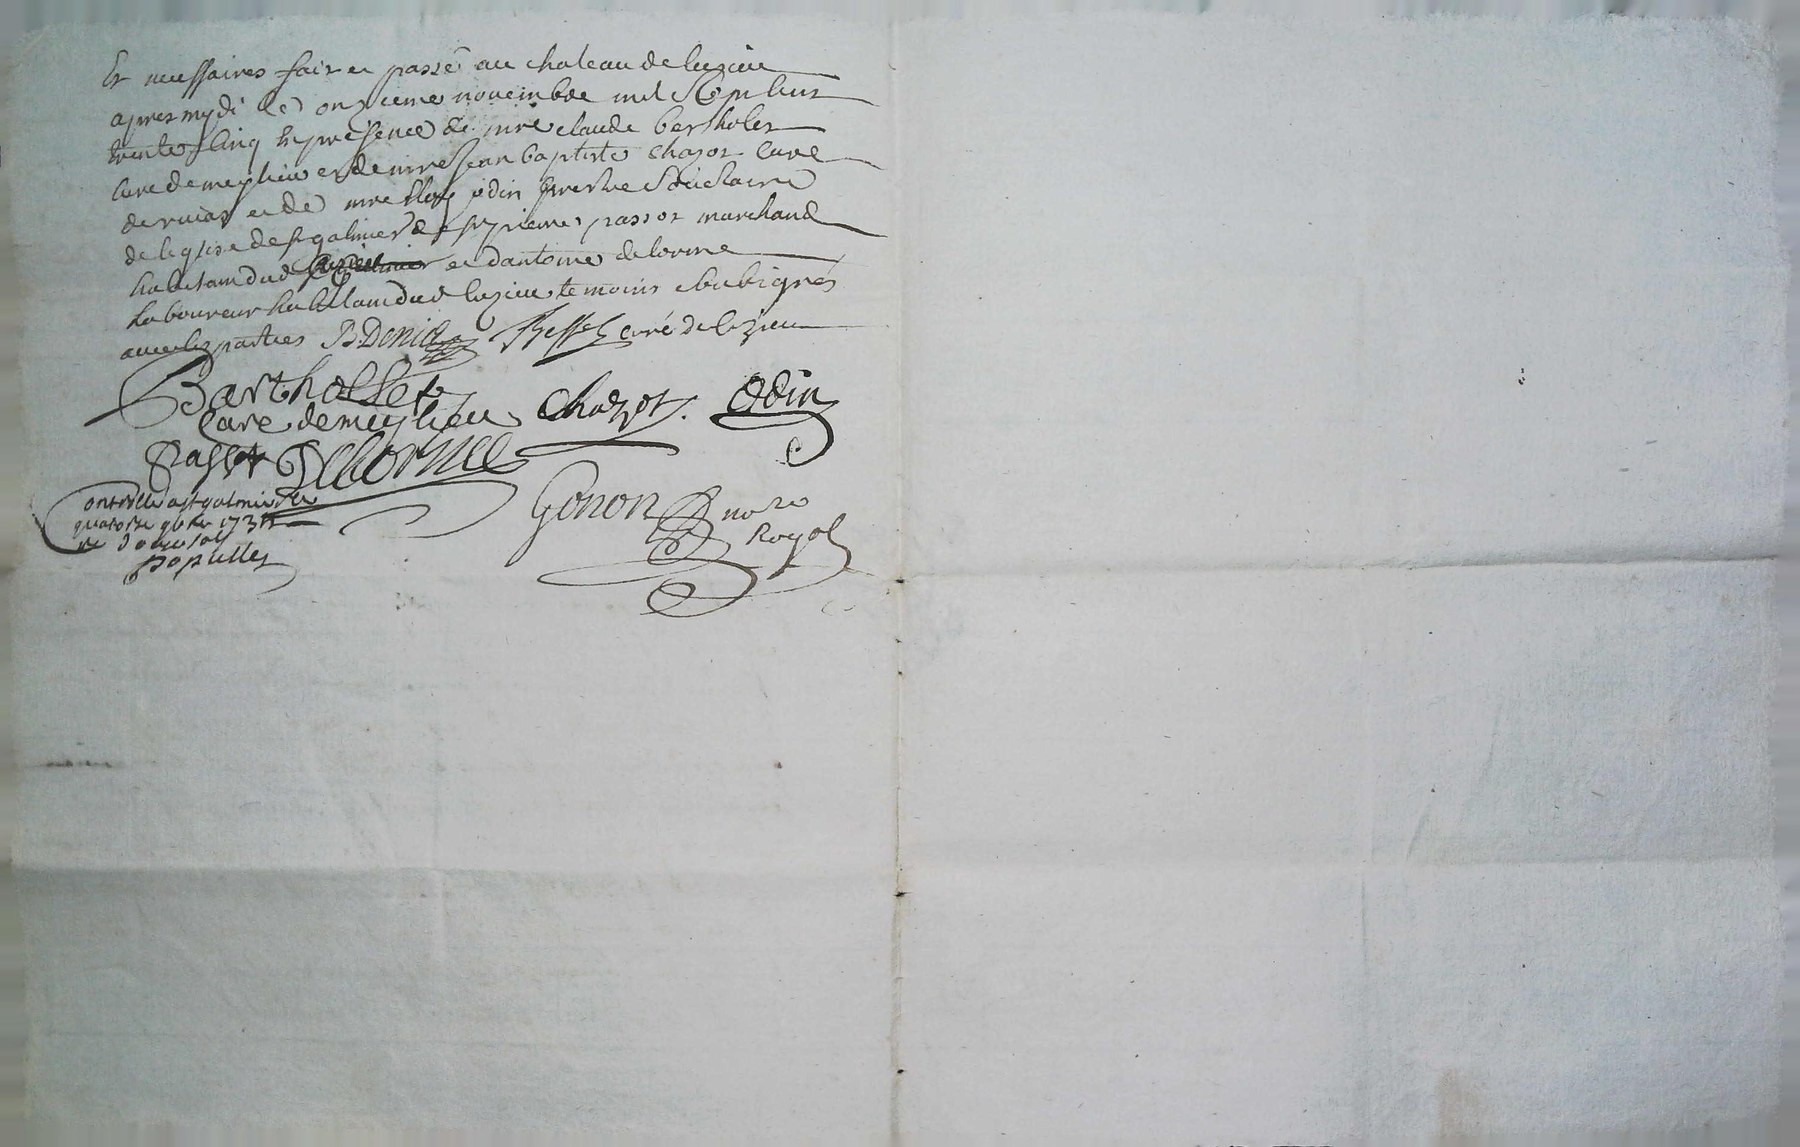 et necessaires fait et passé au chateau de luzieu
apres mydi le onzieme novembre mil sept cent
trente cinq en presence de mre claude bertholet
curé de meylieu et de mre jean baptiste chazot curé
de rivas et de mre odin prestre societaire
de leglise de st galmier de sr pierre passot marchand
habitant dud et dantoine delorme
laboureur habitant dud luzieu temoins soubsignés
avec les parties B. Denié curé de lezieu
Bartholset
Curé de meylieu Chazot. Odin
Passot Delorme
Controllé a st galmier le
quatorze 9bre 1735
Gonon nore
Royal